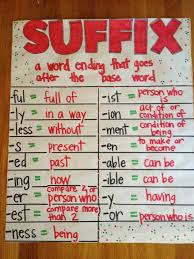 SUFFIX
a word ending that goes
after the base word
-ful = full of
-ly = in a way
-less = without
-s = present
-ed = past
-ing = now
-er = compare 2 or
person who
-est = compare more
than 2
-ness = being
-ist = person who
is
-ion = act of or
condition of
-ment = condition of
being
-en = to make or
become
-able = can be
-ible = can be
-y = having
-or = person who is